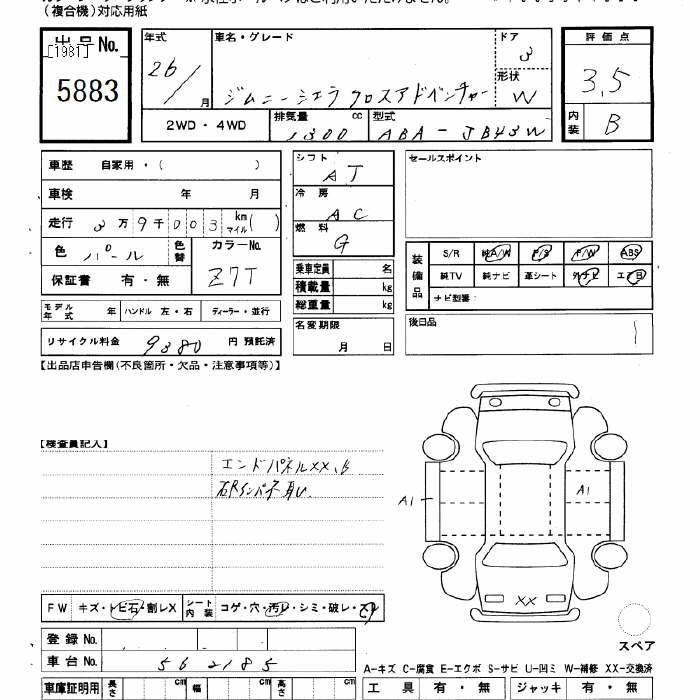 (複合機)対応用紙
出品No. [1981] 5883
年式 26/ 月
車名・グレード ジムニーシエラ クロスアドベンチャー
ドア 3
形状 W
評価点 3.5
内装 B
2WD・4WD
排気量 1300 cc
型式 ABA-JB43W
車歴 自家用・( )
車検 年 月
走行 3万9千003 km マイル( )
色 パール 色替 カラーNo. Z7T
保証書 有・無
モデル年式 年 ハンドル 左・右 ディーラー・並行
リサイクル料金 9380 円 預託済
シフト AT
冷房 AC
燃料 G
乗車定員 名
積載量 kg
総重量 kg
名変期限 月 日
セールスポイント
装備品 S/R 純A/W P/S P/W ABS
純TV 純ナビ 革シート 外ナビ エアB
ナビ型番:
後日品
【出品店申告欄(不良箇所・欠品・注意事項等)】
【検査員記入】
エンドパネルXX、
A1
A1
XX
スペア
FW キズ・トビ石・割レX シート内装 コゲ・穴・汚レ・シミ・破レ・スレ
登録No.
車台No. 562185
A-キズ C-腐食 E-エクボ S-サビ U-凹ミ W-補修 XX-交換済
車庫証明用 長さ cm 幅 cm 高さ cm
工具 有・無 ジャッキ 有・無